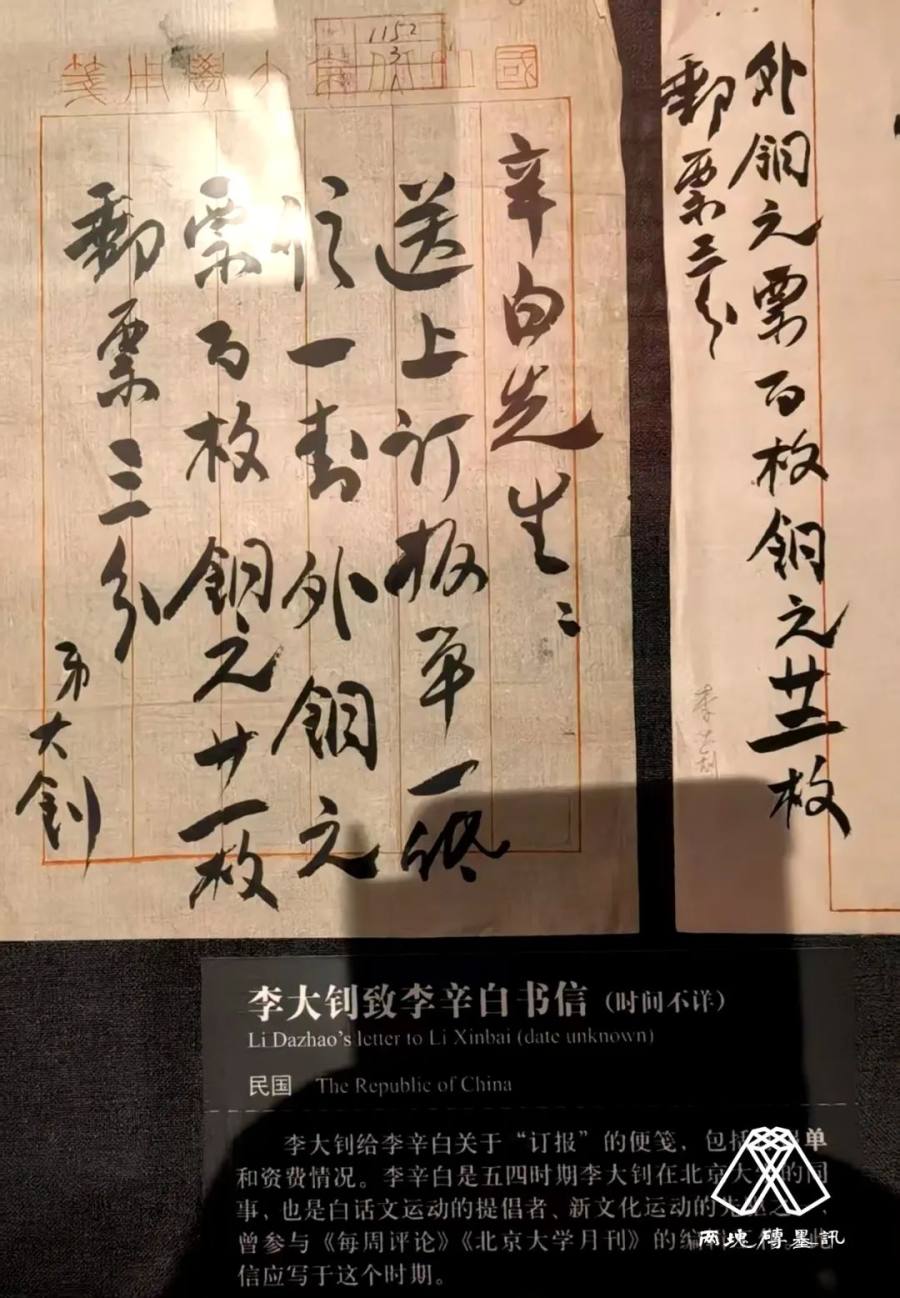 外銅元票百枚銅元枚
郵票三分
李大釗
1152
3
國京大學用箋
辛白先生：
送上订报单一纸
信一封外銅元
票百枚銅元廿一枚
郵票三分
弟大釗
李大钊致李辛白书信（时间不详）
Li Dazhao's letter to Li Xinbai (date unknown)
民国 The Republic of China
李大钊给李辛白关于“订报”的便笺，包括单
和资费情况。李辛白是五四时期李大钊在北京大学的同
事，也是白话文运动的提倡者、新文化运动的先驱之一，
曾参与《每周评论》《北京大学月刊》的编
信应写于这个时期。
两塊磚墨訊